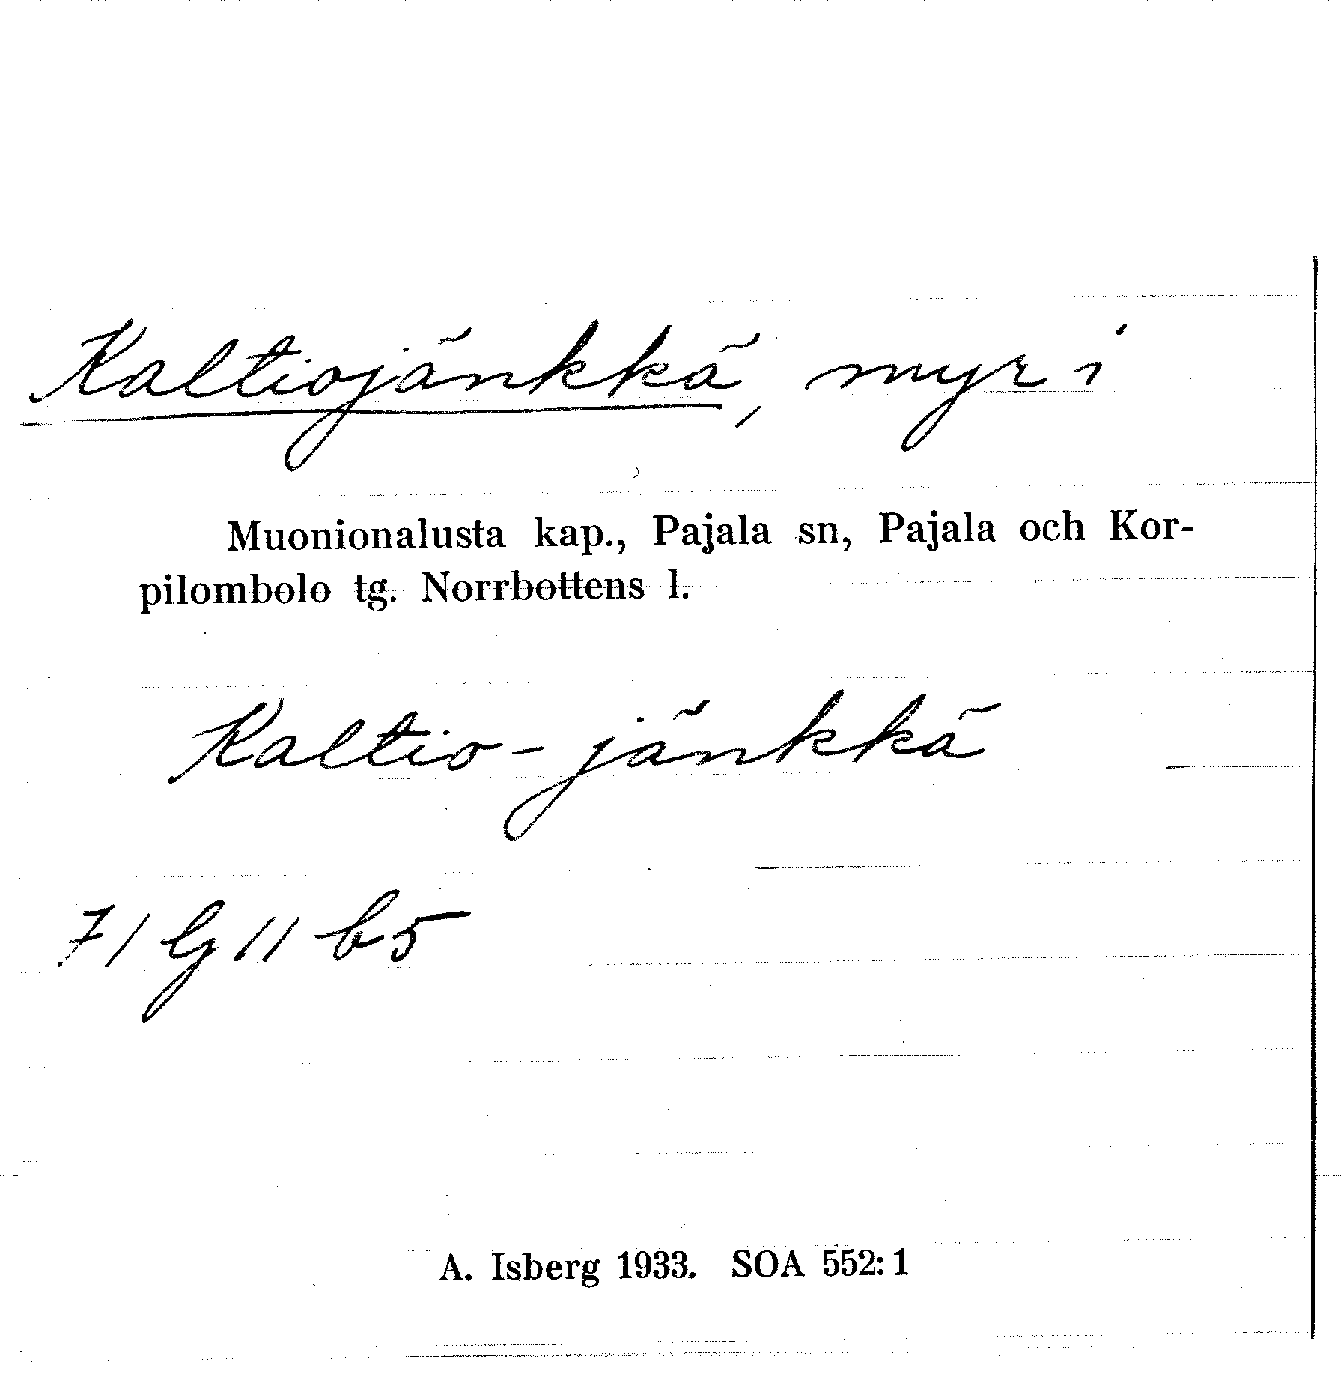 Kaltiojänkkä, myr i
Muonionalusta kap., Pajala sn, Pajala och Kor-
pilombolo tg. Norrbottens l.
Kaltio-jänkkä
71 G 11 b5
A. Isberg 1933. SOA 552:1